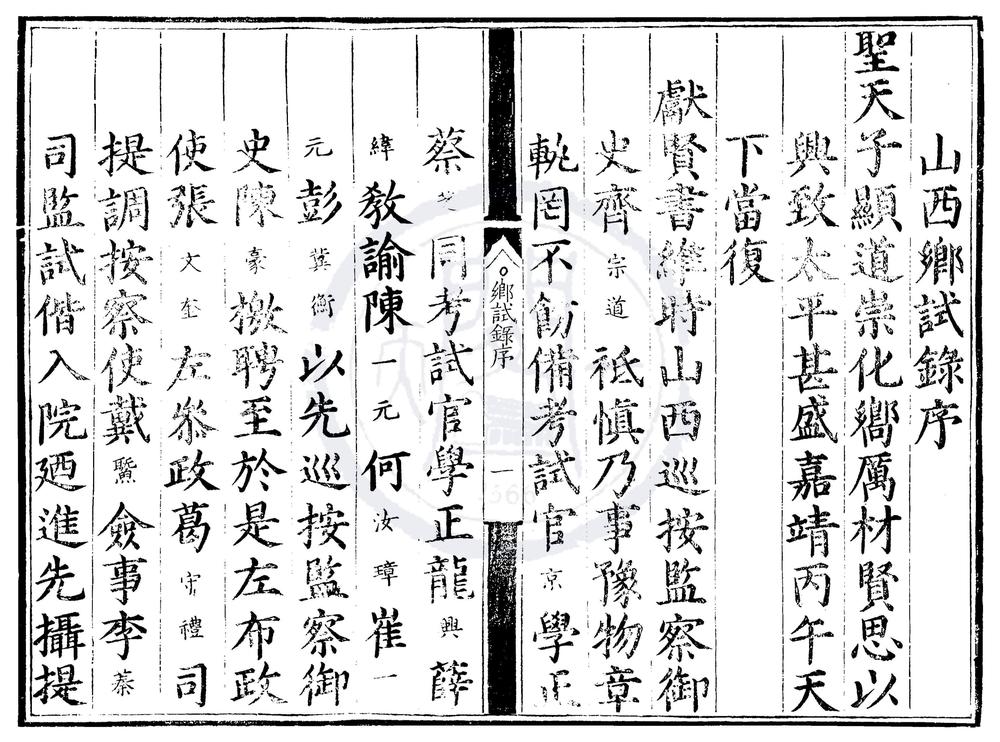 山西鄉試錄序
聖天子顯道崇化嚮厲材賢思以
興致太平甚盛嘉靖丙午天
下當復
獻賢書維時山西巡按監察御
史齊宗道祗慎乃事豫物章
軌罔不飭備考試官京學正
鄉試錄序
一
蔡同考試官學正龍興薛
緯教諭陳一元何汝璋崔一
元彭冀衡以先巡按監察御
史陳豪檄聘至於是左布政
使張文奎左叅政葛守禮司
提調按察使戴䝿僉事李蓁
司監試偕入院廼進先攝提